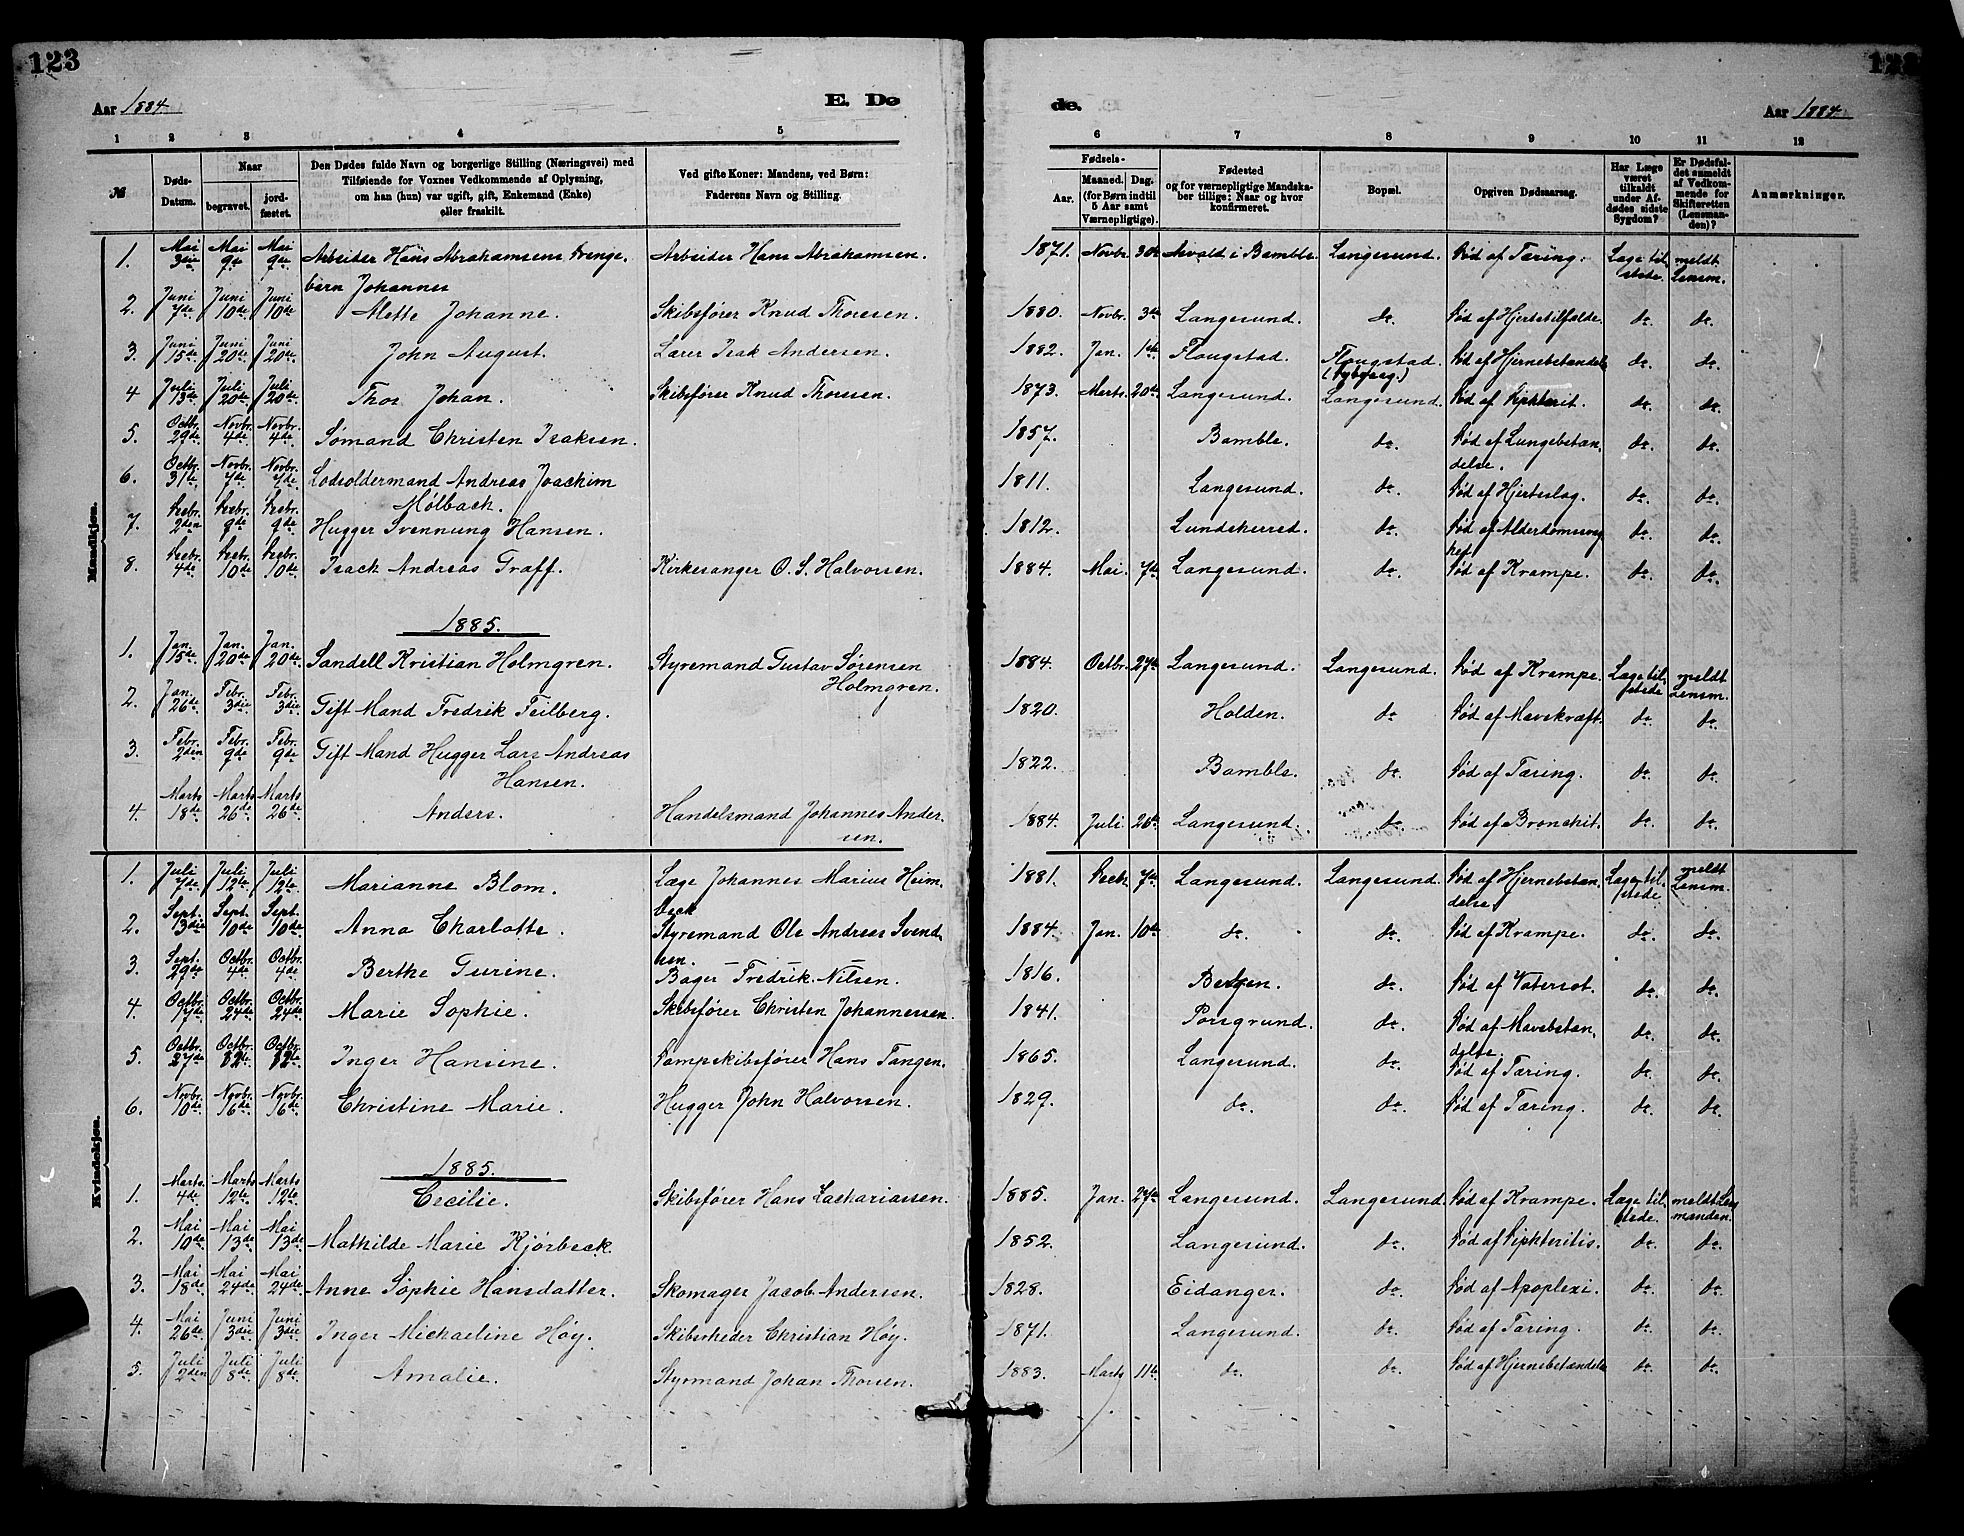 123
Aar 1884
E. Dø
1 2 3 4 5
№
Døds-
Datum.
Naar
begravet.
jord-
fæstet.
Den Dødes fulde Navn og borgerlige Stilling (Næringsvei) med
Tilføiende for Voxnes Vedkommende af Oplysning,
om han (hun) var ugift, gift, Enkemand (Enke)
eller fraskilt.
Ved gifte Koner: Mandens, ved Børn:
Faderens Navn og Stilling.
Mandkjøn.
1. Mai 3die Mai 9de Mai 9de Arbeider Hans Abrahamsens Drenge- Arbeider Hans Abrahamsen.
barn Johannes
2. Juni 7de Juni 10de Juni 10de Mette Johanne. Skibsfører Knud Thorsen.
3. Juni 15de Juni 20de Juni 20de John August. Lærer Isak Andersen.
4 Juli 13de Juli 20de Juli 20de Thor Johan. Skibsfører Knud Thorsen.
5. Octbr. 29de Novbr. 4de Novbr. 4de Sømand Christen Isaksen.
6. Octbr. 31te Novbr. 7de Novbr. 7de Lodsoldermand Andreas Joachim
Mølbach.
7. Decbr. 2den Decbr. 9de Decbr. 9de Hugger Svennung Hansen.
8. Decbr. 4de Decbr. 10de Decbr. 10de Isach Andreas Graff. Kirkesanger O. S. Halvorsen.
1885.
1. Jan. 15de Jan. 20de Jan. 20de Sandell Kristian Holmgren. Styremand Gustav Sørensen
Holmgren.
2. Jan. 26de Febr. 3die Febr. 3die Gift Mand Fredrik Feilberg.
3. Febr. 2den Febr. 9de Febr. 9de Gift Mand Hugger Lars Andreas
Hansen.
4. Marts 18de Marts 26de Marts 26de Anders. Handelsmand Johannes Ander-
sen.
Kvindekjøn.
1. Juli 7de Juli 12te Juli 12te Marianne Blom. Læge Johannes Marius Heim-
beck
2. Sept. 3die Sept. 10de Sept. 10de Anna Charlotte. Styremand Ole Andreas Svend-
sen.
3. Sept. 29de Octbr. 4de Octbr. 4de Berthe Gurine. Bager Fredrik Nilsen.
4. Octbr. 17de Octbr. 24de Octbr. 24de Marie Sophie. Skibsfører Christen Johannessen.
5. Octbr. 27de Octbr. Octbr. Inger Hansine. Dampskibsfører Hans Tangen.
6. Novbr. 10de Novbr. 16de Novbr. 16de Christine Marie. Hugger John Halvorsen.
1885.
1. Marts 4de Marts 12te Marts 12te Cecilie. Skibsfører Hans Zachariassen.
2. Mai 10de Mai 13de Mai 13de Mathilde Marie Kjørbeck.
3. Mai 18de Mai 24de Mai 24de Anne Sophie Hansdatter. Skomager Jacob Andersen.
4. Mai 26de Juni 3die Juni 3die Inger Michaeline Høy. Skibsrheder Christian Høy.
5. Juli 2den Juli 8de Juli 8de Amalie. Styrmand Johan Thorsen.
de.
Aar 1884
6 7 8 9 10 11 12
Fødsels-
Aar.
Maaned. Dag.
(for Børn indtil
5 Aar samt
Værnepligtige).
Fødested
og for værnepligtige Mandska-
ber tillige: Naar og hvor
konfirmeret.
Bopæl.
Opgiven Dødsaarsag.
Har Læge
været
tilkaldt
under Af-
dødes sidste
Sygdom?
Er Dødsfal-
det anmeldt
af Vedkom-
mende for
Skifteretten
(Lensman-
den)?
Anmærkninger.
1871. Novbr. 30te Aavald i Bamble. Langesund. Død af Tæring. Læge til- meldt
stede. Lensm.
1880. Novbr. 3die Langesund. do. Død af Hjertetilfælde. do. do.
1882. Jan. 1ste Flougstad. Flougstad. Død af Hjernebetændelse do. do.
1873. Marts 20de Langesund. Langesund. Død af Diphterit. do. do.
1857. Bamble. do. Død af Lungebetæn- do. do.
delse.
1811. Langesund. do. Død af Hjerteslag. do. do.
1812. Lundeherred. do. Død af Alderdomssvag- do. do.
hed
1884. Mai. 7de Langesund. do. Død af Krampe. do. do.
1884. Octbr. 27de Langesund. Langesund. Død af Krampe. Læge til- meldt
stede Lensm.
1820. Holden. do. Død af Mavekræft. do. do.
1822. Bamble. do. Død af Tæring. do. do.
1884. Juli 26de Langesund. do Død af Bronchit. do. do.
1881. Decbr. 7de Langesund. Langesund. Død af Hjernebetæn- Læge til- meldt
delse. stede Lensm.
1884. Jan. 10de do. do. Død af Krampe. do. do.
1816. Bergen. do. Død af Vatersot. do. do.
1841. Porsgrund. do. Død af Mavebetæn- do. do.
delse.
1865. Langesund. do. Død af Tæring. do. do.
1829. do. do. Død af Tæring. do. do.
1885. Jan. 27de Langesund. Langesund Død af Krampe. Læge til- meldt Lens-
stede. manden.
1852. Langesund. do. Død af Diphteritis. do. do.
1828. Eidanger. do. Død af Apoplexi. do. do.
1871. Langesund. do. Død af Tæring. do. do.
1883. Marts 11te do. do. Død af Hjernebetændelse do. do.